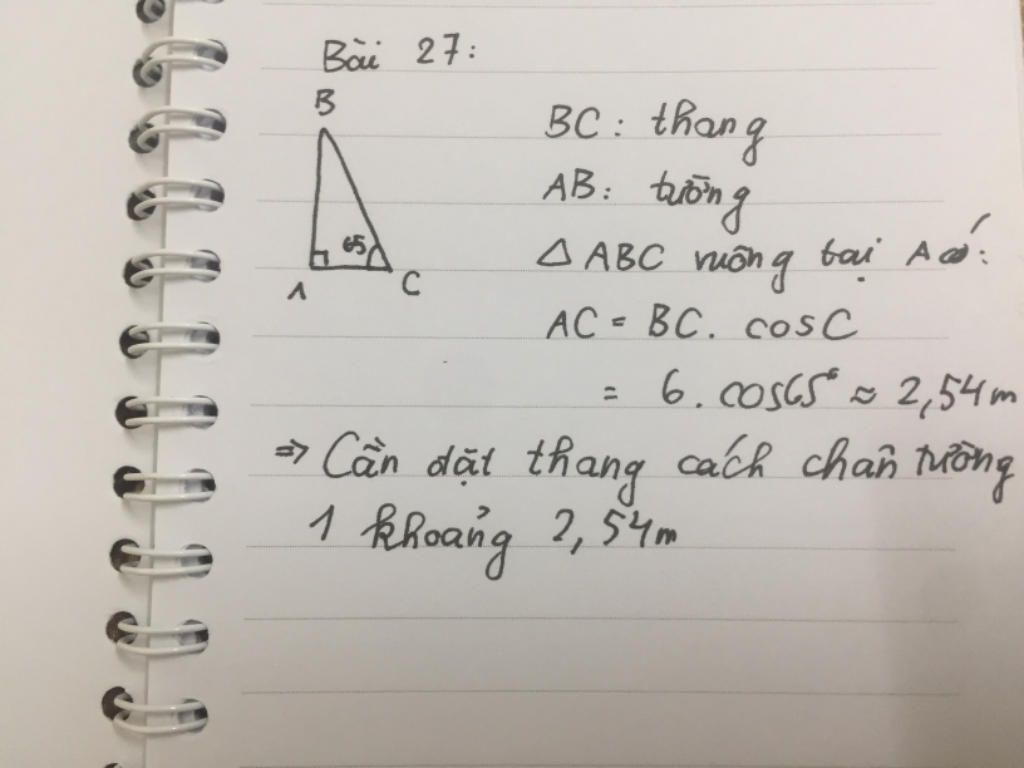 Bài 27:
B
65
A
C
BC: thang
AB: tường
△ ABC vuông tại A có:
AC = BC. cosC
= 6. cos65° ≈ 2,54m
⇒ Cần đặt thang cách chân tường
1 khoảng 2,54m